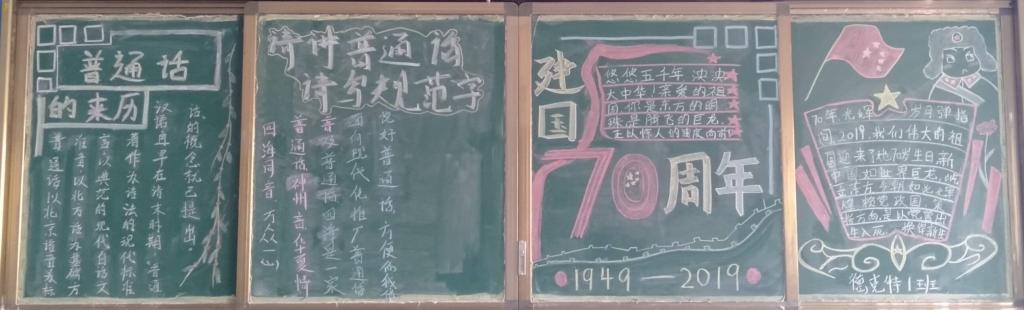 普通话
的来历
普通话以北京语音为标
准音,以北方话为基础方
言以典范的现代白话文
著作为语法的现代标准
汉语早在清末时期,普通
话的概念就已提出
请讲普通话
请写规范字
说好普通话,方便你我他
面向现代化推广普通话
普及普通话四海是一家
普通话神州音华夏情
四海同音 万众一心
建国
70周年
悠悠五千年 泱泱
大中华!亲爱的祖
国你是东方的明
珠是腾飞的巨龙
正以惊人的速度向前
1949—2019
70年光辉 岁月弹指
间2019.我们伟大的祖
国迎来了她70岁生日新
中国如世界巨龙
德克特1班